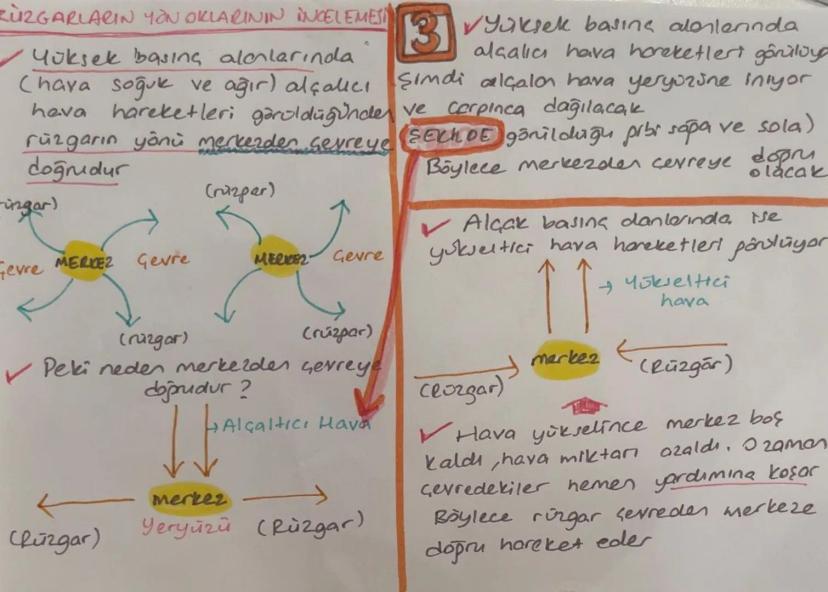 RÜZGARLARIN YÖN OKLARININ İNCELEMESİ
✓ Yüksek basınç alanlarında
(hava soğuk ve ağır) alçalıcı
hava hareketleri görüldüğünden
rüzgarın yönü merkezden çevreye
doğrudur
(rüzgar)
(rüzgar)
MERKEZ
Çevre
MERKEZ
Çevre
Çevre
(rüzgar)
(rüzgar)
✓ Peki neden merkezden çevreye
doğrudur?
Alçaltıcı Hava
merkez
Yeryüzü
(Rüzgar)
(Rüzgar)
3
✓ Yüksek basınç alanlarında
alçalıcı hava hareketleri görülüyor
Şimdi alçalan hava yeryüzüne iniyor
ve çarpınca dağılacak
ŞEKİLDE görüldüğü gibi sağa ve sola)
Böylece merkezden çevreye doğru
olacak
✓ Alçak basınç alanlarında ise
yükseltici hava hareketleri görülüyor
Yükseltici
hava
merkez
(Rüzgar)
(Rüzgâr)
✓ Hava yükselince merkez boş
kaldı, hava miktarı azaldı. O zaman
çevredekiler hemen yardımına koşar
Böylece rüzgar çevreden merkeze
doğru hareket eder